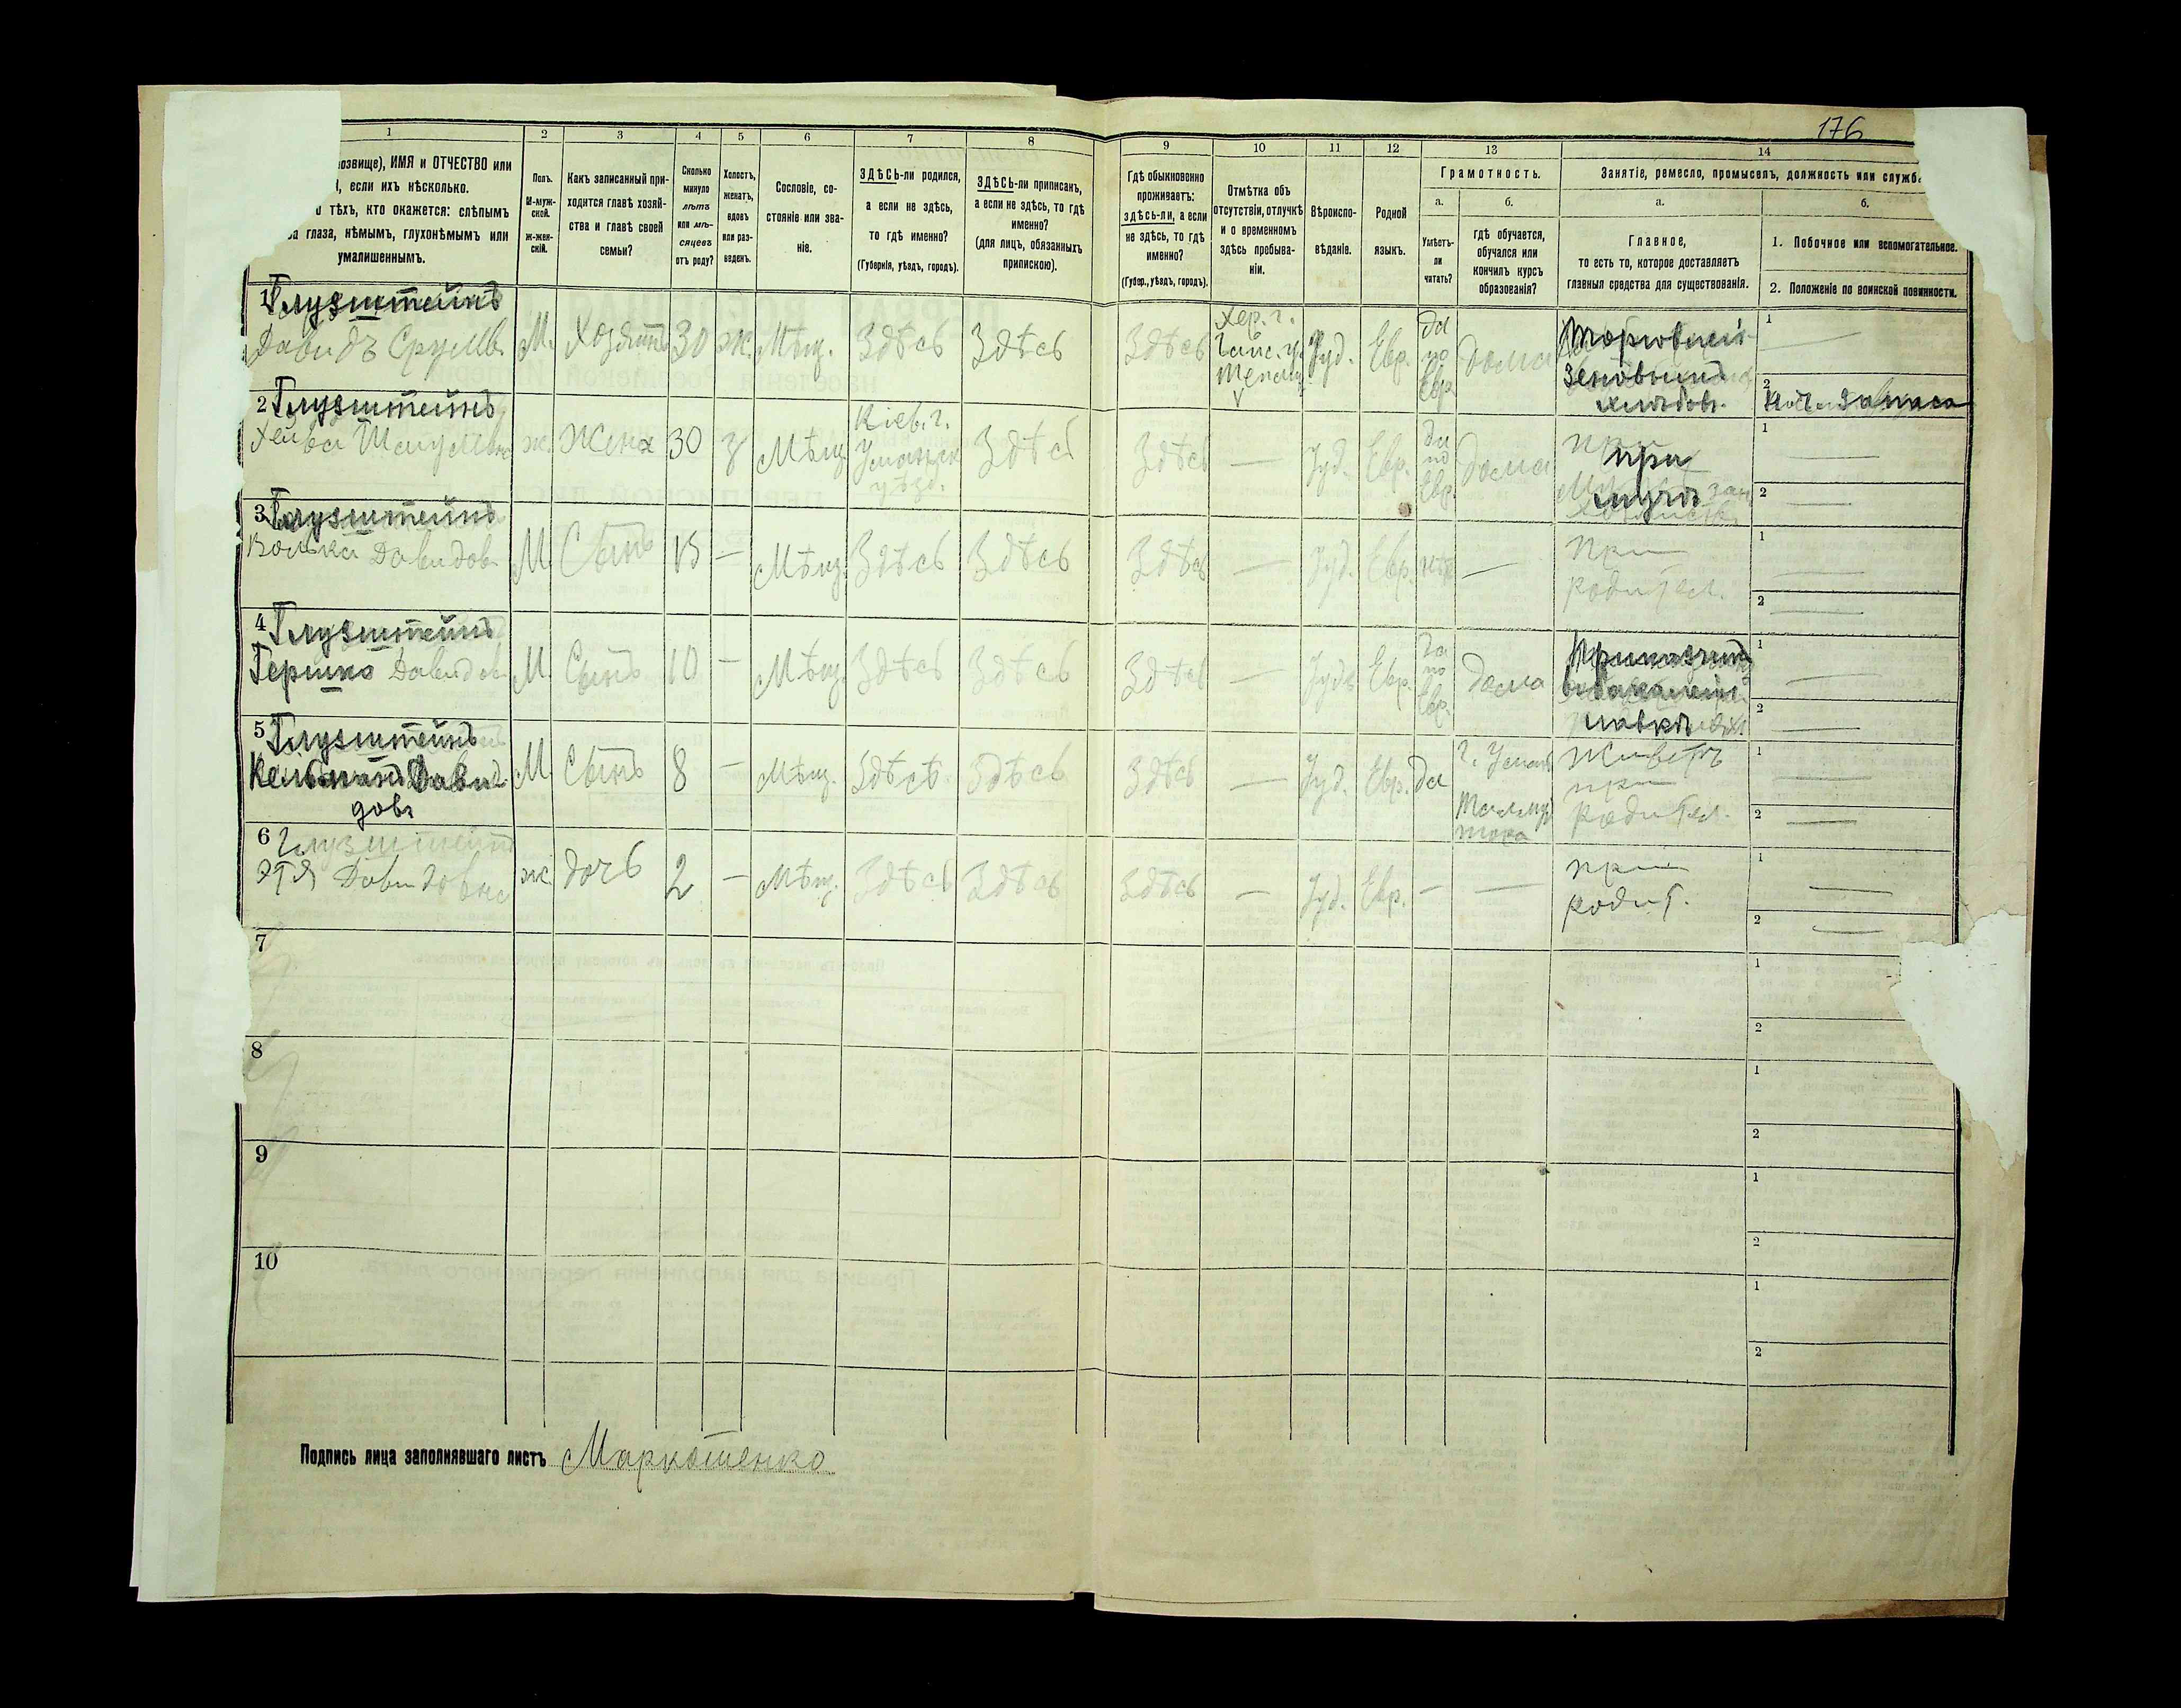 176
1 2 3 4 5 6 7 8 9 10 11 12 13 14
озвище), ИМЯ и ОТЧЕСТВО или
если ихъ нѣсколько.
тѣхъ, кто окажется: слѣпымъ
глаза, нѣмымъ, глухонѣмымъ или
умалишеннымъ.
Полъ.
М-муж-
ской.
Ж-жен-
скій.
Какъ записанный при-
ходится главѣ хозяй-
ства и главѣ своей
семьи?
Сколько
минуло
лѣтъ
или мѣ-
сяцевъ
отъ роду?
Холостъ,
женатъ,
вдовъ
или раз-
веденъ.
Сословіе, со-
стояніе или зва-
ніе.
ЗДѢСЬ-ли родился,
а если не здѣсь,
то гдѣ именно?
(Губернія, уѣздъ, городъ).
ЗДѢСЬ-ли приписанъ,
а если не здѣсь, то гдѣ
именно?
(для лицъ, обязанныхъ
припискою).
Гдѣ обыкновенно
проживаетъ:
здѣсь-ли, а если
не здѣсь, то гдѣ
именно?
(Губер., уѣздъ, городъ).
Отмѣтка объ
отсутствіи, отлучкѣ
и о временномъ
здѣсь пребыва-
ніи.
Вѣроиспо-
вѣданіе.
Родной
языкъ.
Грамотность.
а.
Умѣетъ-
ли
читать?
б.
гдѣ обучается,
обучался или
кончилъ курсъ
образованія?
Занятіе, ремесло, промыселъ, должность или служб
а.
Главное,
то есть то, которое доставляетъ
главныя средства для существованія.
б.
1. Побочное или вспомогательное.
2. Положеніе по воинской повинности.
1 Глузштейнъ
Давидъ Срулев.
М.
Хозяинъ
30
ж.
Мѣщ.
Здѣсь
Здѣсь
Здѣсь
Хер. г.
Іуд.
Евр.
да
по
Евр.
Дома
Торговецъ
зерновымъ
хлѣбом.
1
2
запаса
2 Глузштейнъ
ж.
Жена
30
з
Мѣщ.
Кіев. г.
Уманск.
уѣзд.
Здѣсь
Здѣсь
—
Іуд.
Евр.
да
по
Евр.
Дома
при
мужѣ
1
2
3 Глузштейнъ
Волька Давидов.
М.
Сынъ
13
—
Мѣщ.
Здѣсь
Здѣсь
Здѣсь
—
Іуд.
Евр.
нѣт
—
При
родител.
1
2
4 Глузштейнъ
Гершко Давидов.
М.
Сынъ
10
—
Мѣщ.
Здѣсь
Здѣсь
Здѣсь
—
Іуд.
Евр.
да
по
Евр.
Дома
Приказчикъ
въ бакалейн.
лавкѣ
1
2
5 Глузштейнъ
Кельманъ Давид
дов.
М.
Сынъ
8
—
Мѣщ.
Здѣсь
Здѣсь
Здѣсь
—
Іуд.
Евр.
да
г. Умань
Талмуд
тора
Живетъ
при
родител.
1
2
6 Глузштейнъ
Этя Давидовна
ж.
дочь
2
—
Мѣщ.
Здѣсь
Здѣсь
Здѣсь
—
Іуд.
Евр.
—
—
при
родит.
1
2
7
1
2
8
1
2
9
1
2
10
1
2
Подпись лица заполнявшаго листъ Маркотенко